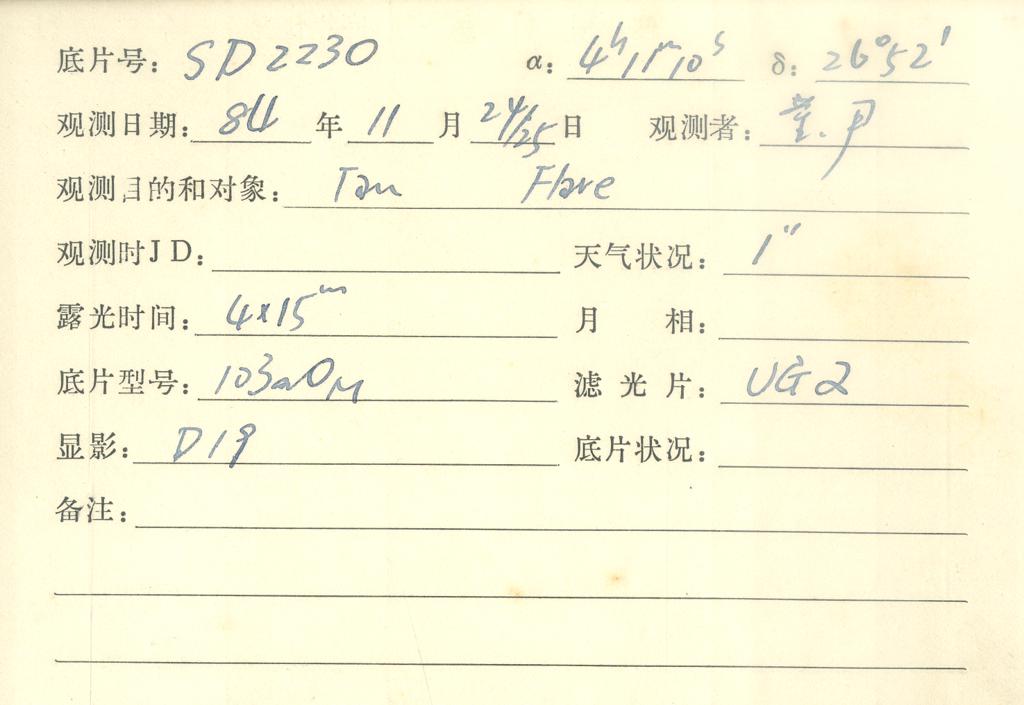 底片号: SD2230 α: 4h11m10s δ: 26°52'
观测日期: 84 年 11 月 24/25 日 观测者:
观测目的和对象: Tau Flare
观测时JD: 天气状况: 1"
露光时间: 4x15m 月 相:
底片型号: 103aO 滤光片: UG2
显影: D19 底片状况:
备注: